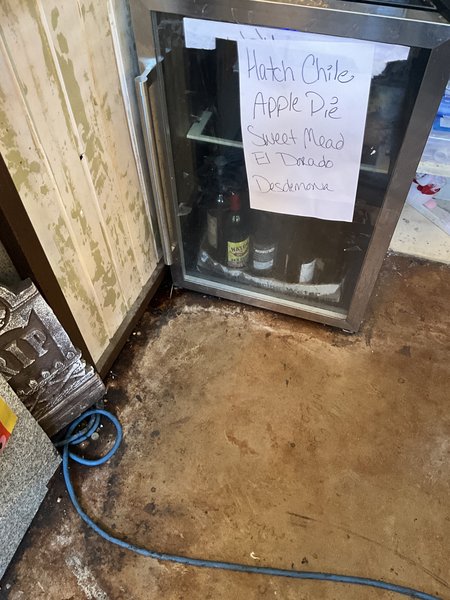 Hatch Chile
Apple Pie
Sweet Mead
El Dorado
Desdemona
RIP